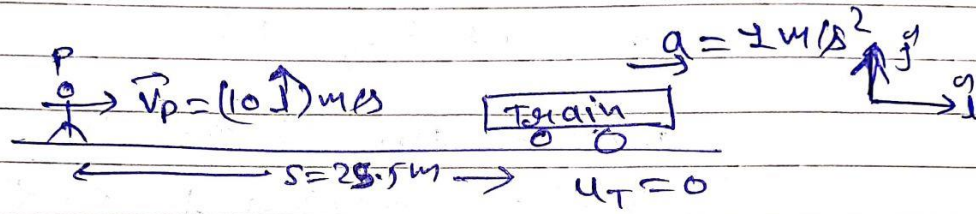 a = 1 m/s² ĵ
P
V⃗p = (10 î) m/s
Train
î
s = 25.5m
u_T = 0